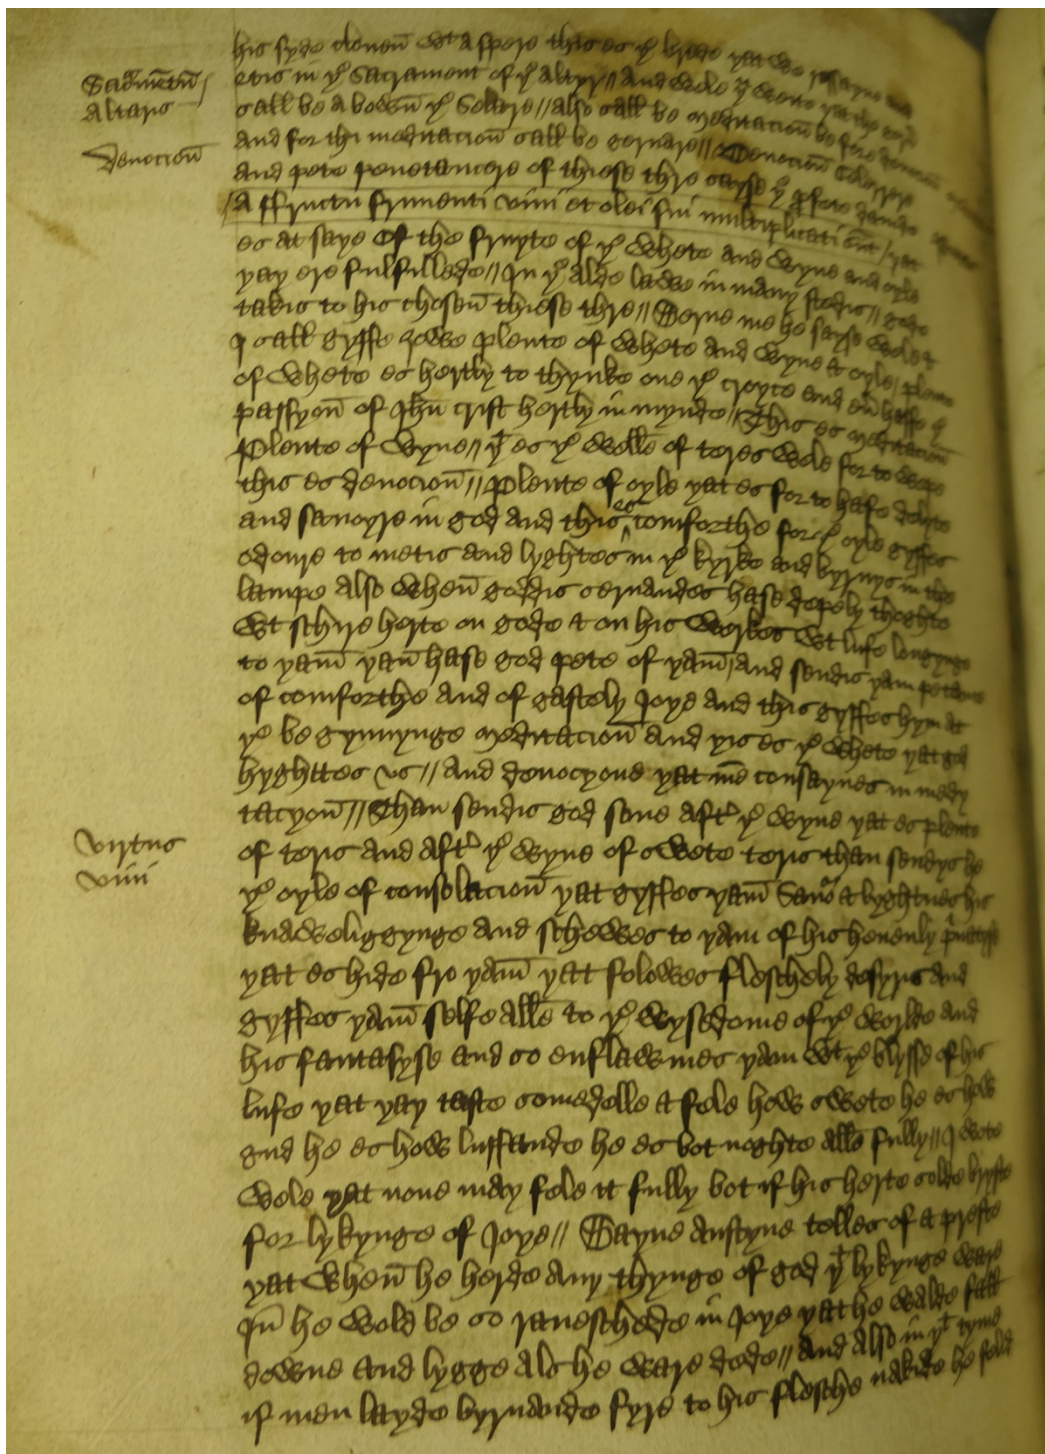 his syde clouen wt a spere this es ye brede yat we
Sacramentu
etis in ye Sacrament of ye alter // And wele
Altaris
sall be abowun ye Soltre // also sall be meditacion be fore deuocion
Deuocion
and for thi meditacion sall be gernare // Deuocion Celere
and pete penetancere of thiese thre sayse ye prfete dauid
A ffructu frumenti vini et olei sui multiplicati sunt / yat
es at saye Of the fruyte of ye whete and wyne and oyle
yay ere fulfillede // In ye alde lawe in many stedis // gode
takis to his chosen thiese thre // Serue me he sayse wele &
I sall gyffe yowe plente of whete and wyne & oyle / plente
of whete es hertly to thynke one ye croyce and en haffe ye
passyon of Jhu crist hertly in mynde // This es meditacion
Plente of wyne // yt es ye welle of teres wele for to wepe
this es deuocion // Plente of oyle yat es for to hafe delyte
and sauoyre in god and this es comforthe for ye oyle gyffes
odoure to metis and lyghtes in ye kyrke and byrnys in the
lampe Also when goddis seruandes hase depely thoghte
wt schire herte on gode & on his werkes wt lufe longynge
to yam yan hase god pete of yam / and sendis yam petance
of comforthe and of gastely Joye and this gyffes hym at
ye begynnynge meditacion and yis es ye whete yat god
hyghttes vs // And deuocyone yat me consaynes in medy
tacyon // Than sendis god sone aftr ye wyne yat es plente
virtus
of teris and aftr ye wyne of swete teris than sendys he
vini
ye oyle of consolacion yat gyffes yam Sauor & lyghtnes his
knaweliggynge and schewes to yam of his heuenly
yat es hide fro yam yat folowes fleschely desyris and
gyffes yam selfe alle to ye wysedome of ye worlde and
his fantasyse and so enflawmes yam wt ye blysse of his
lufe yat yay taste somedelle & fele how swete he es how
gud he es how luffande he es bot noghte alle fully // I wote
wele yat none may fele it fully bot if his herte solde bryste
for lykynge of Joye // Sayne austyne telles of a preste
yat when he herde any thynge of god yt lykynge ware
In he wold be so raueschede in Joye yat he walde fall
downe and lygge als he ware dede // And also in yt tyme
if men layde byrnande fyre to his flesche nakide he feld